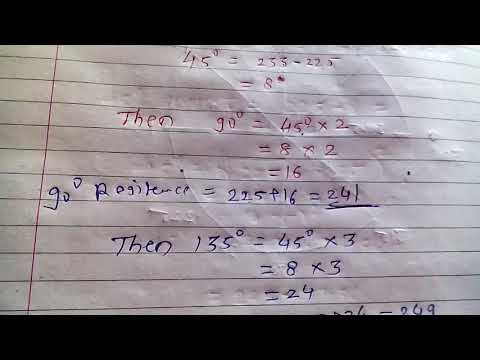 45° = 233-225
= 8°
Then 90° = 45° × 2
= 8 × 2
= 16
90° Rasitence = 225+16 = 241
Then 135° = 45° × 3
= 8 × 3
= 24
= 249